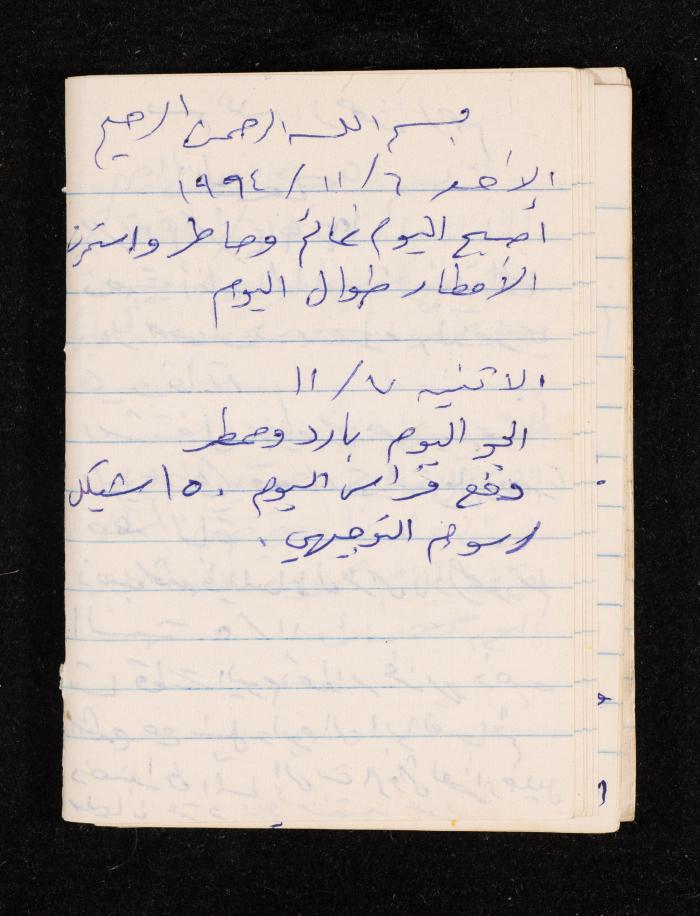 بسم الله الرحمن الرحيم
الأحد ٦/١١/١٩٩٤
أصبح اليوم غائم وماطر واستمرت
الأمطار طوال اليوم
الاثنين ٧/١١
الجو اليوم بارد وممطر
دفع فراس اليوم ١٥٠ شيكل
رسوم التوجيهي .